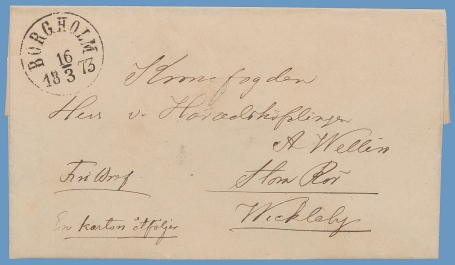 BORGHOLM
16
18 3 73
Kronofogden
Herr v. Häradshöfdingen
A Wellin
Stora Rör
Wickleby
Fri Bref
En karton åtföljer